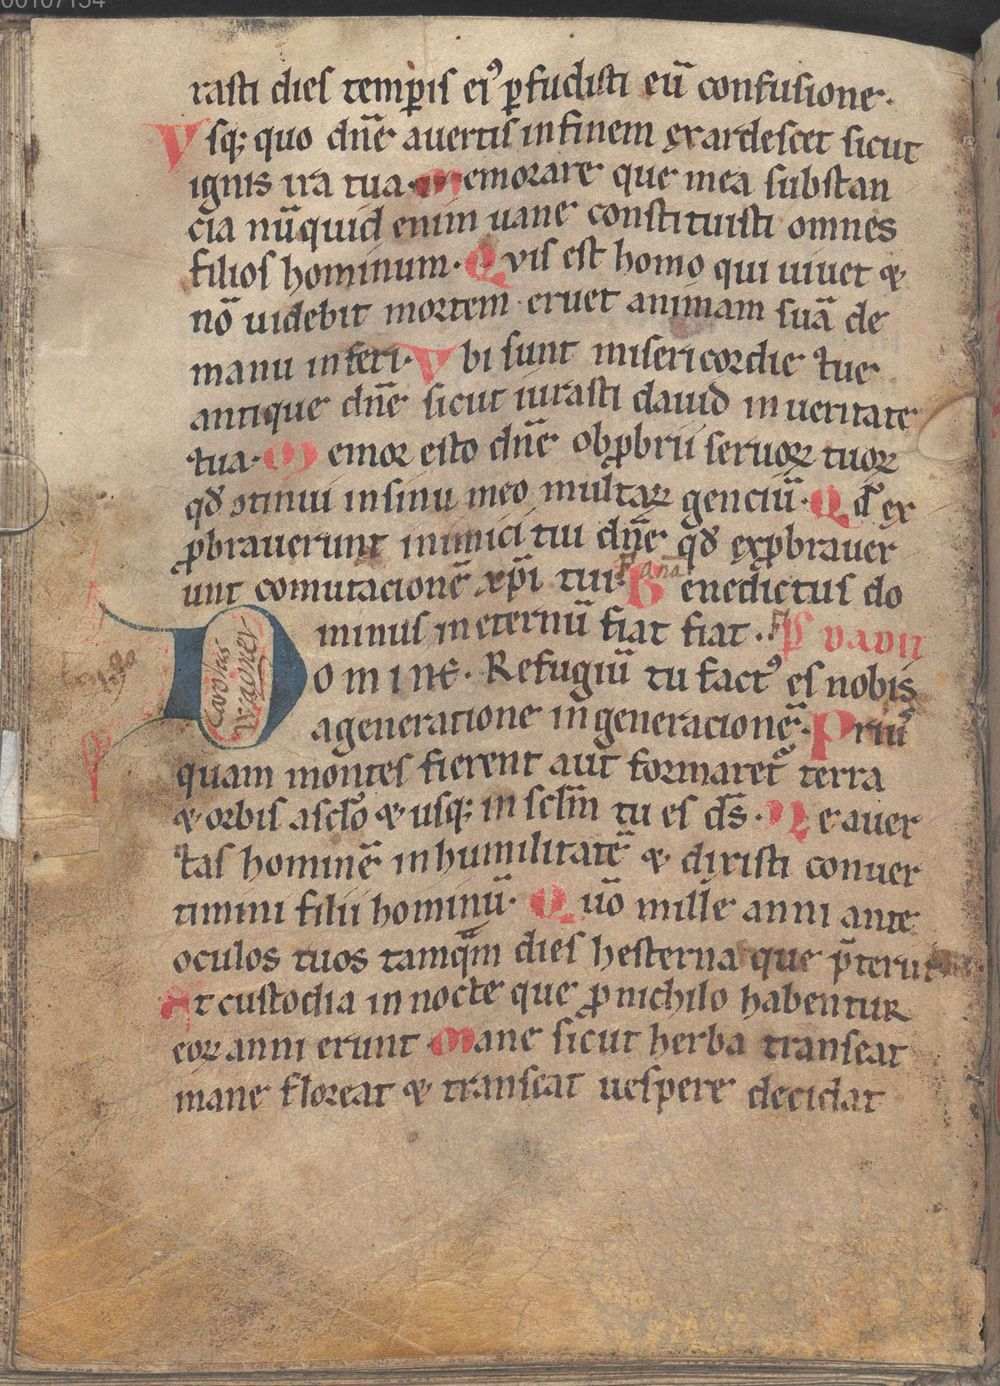 rasti dies temꝑis eiꝰ ꝑfudisti eū confusione.
Vsqꝫ quo dn̄e auertis in finem exardescet sicut
ignis ira tua. Memorare que mea substan
cia nūquid enim uane constituisti omnes
filios hominum. Qvis est homo qui uiuet ⁊
nō uidebit mortem eruet animam suā de
manu inferi. Vbi sunt misericordie tue
antique dn̄e sicut iurasti dauid in ueritate
tua. Memor esto dn̄e obꝓbrii seruoꝝ tuoꝝ
qd̄ ↄtinui in sinu meo multaꝝ genciū. Qd̄ ex
ꝓbrauerunt inimici tui dn̄e qd̄ exꝓbrauer
unt comutacionē xp̄i tui. Benedictus do
minus in eternū fiat fiat. Ps
Domine. Refugiū tu factꝰ es nobis
a generatione in generacionē. Priuſ
quam montes fierent aut formaret᷑ terra
⁊ orbis a sclō ⁊ usqꝫ in sclm̄ tu es ds̄. Ne auer
tas hominē in humilitatē ⁊ dixisti conuer
timini filii hominū. Qūo mille anni ante
oculos tuos tamqm̄ dies hesterna que p̄teriit
Et custodia in nocte que ꝓ nichilo habentur
eoꝝ anni erunt Mane sicut herba transeat
mane floreat ⁊ transeat uespere decidat